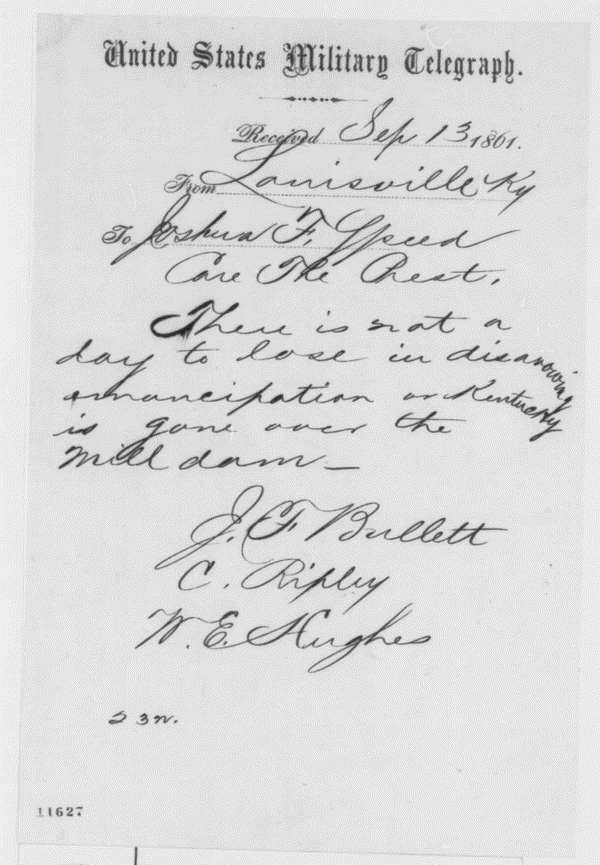 United States Military Telegraph.
Received Sep 13 1861.
From Louisville Ky
To Joshua F. Speed
Care The Prest.
There is not a
day to lose in disavowing
emancipation or Kentucky
is gone over the
Mill dam—
J. F. Bullett
C. Ripley
W. E. Hughes
23 W.
11627